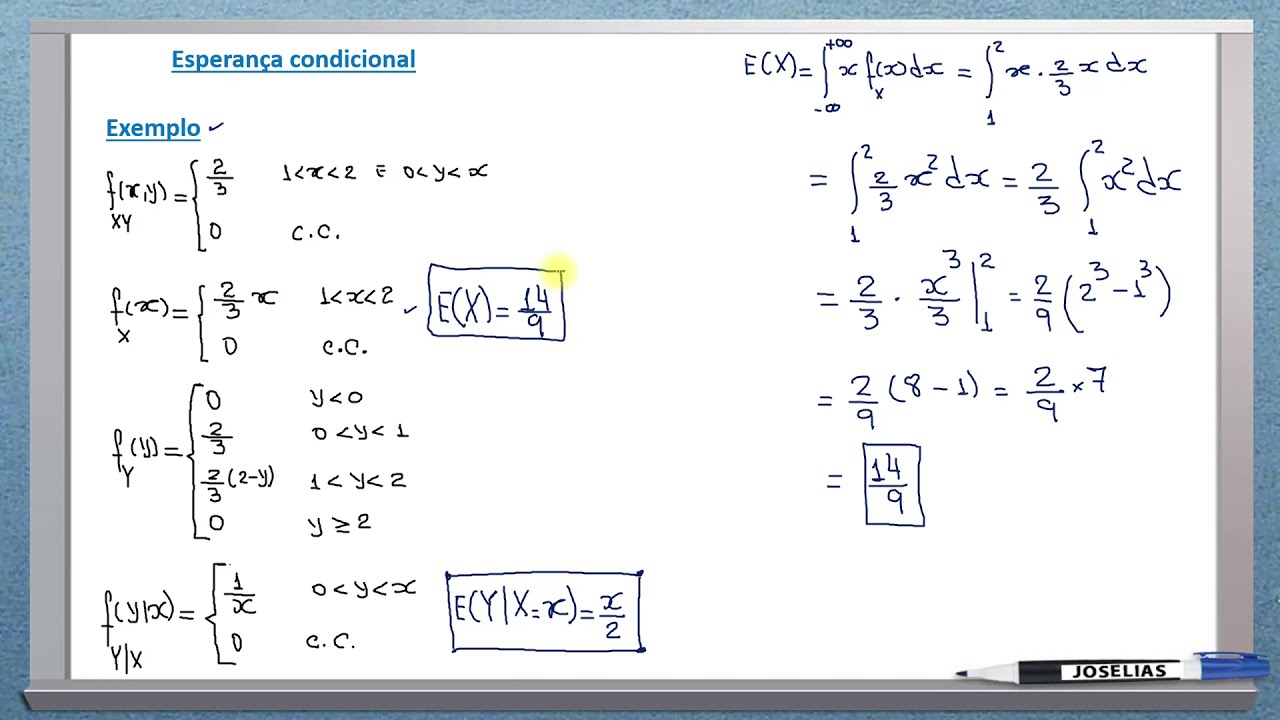 Esperança condicional
Exemplo ✓
f(x,y) = { 2/3   1<x<2 E 0<y<x
XY
0   C.C.
f(x) = { 2/3 x   1<x<2 ✓
X
0   C.C.
E(X) = 14/9
f(y) = { 0   y<0
Y
2/3   0<y<1
2/3 (2-y)   1<y<2
0   y≥2
f(y|x) = { 1/x   0<y<x
Y|X
0   C.C.
E(Y|X=x) = x/2
E(X) = ∫_{-∞}^{+∞} x f_X(x) dx = ∫_1^2 x · 2/3 x dx
= ∫_1^2 2/3 x² dx = 2/3 ∫_1^2 x² dx
= 2/3 · x³/3 |_1^2 = 2/9 (2³ - 1³)
= 2/9 (8 - 1) = 2/9 × 7
= 14/9
JOSELIAS